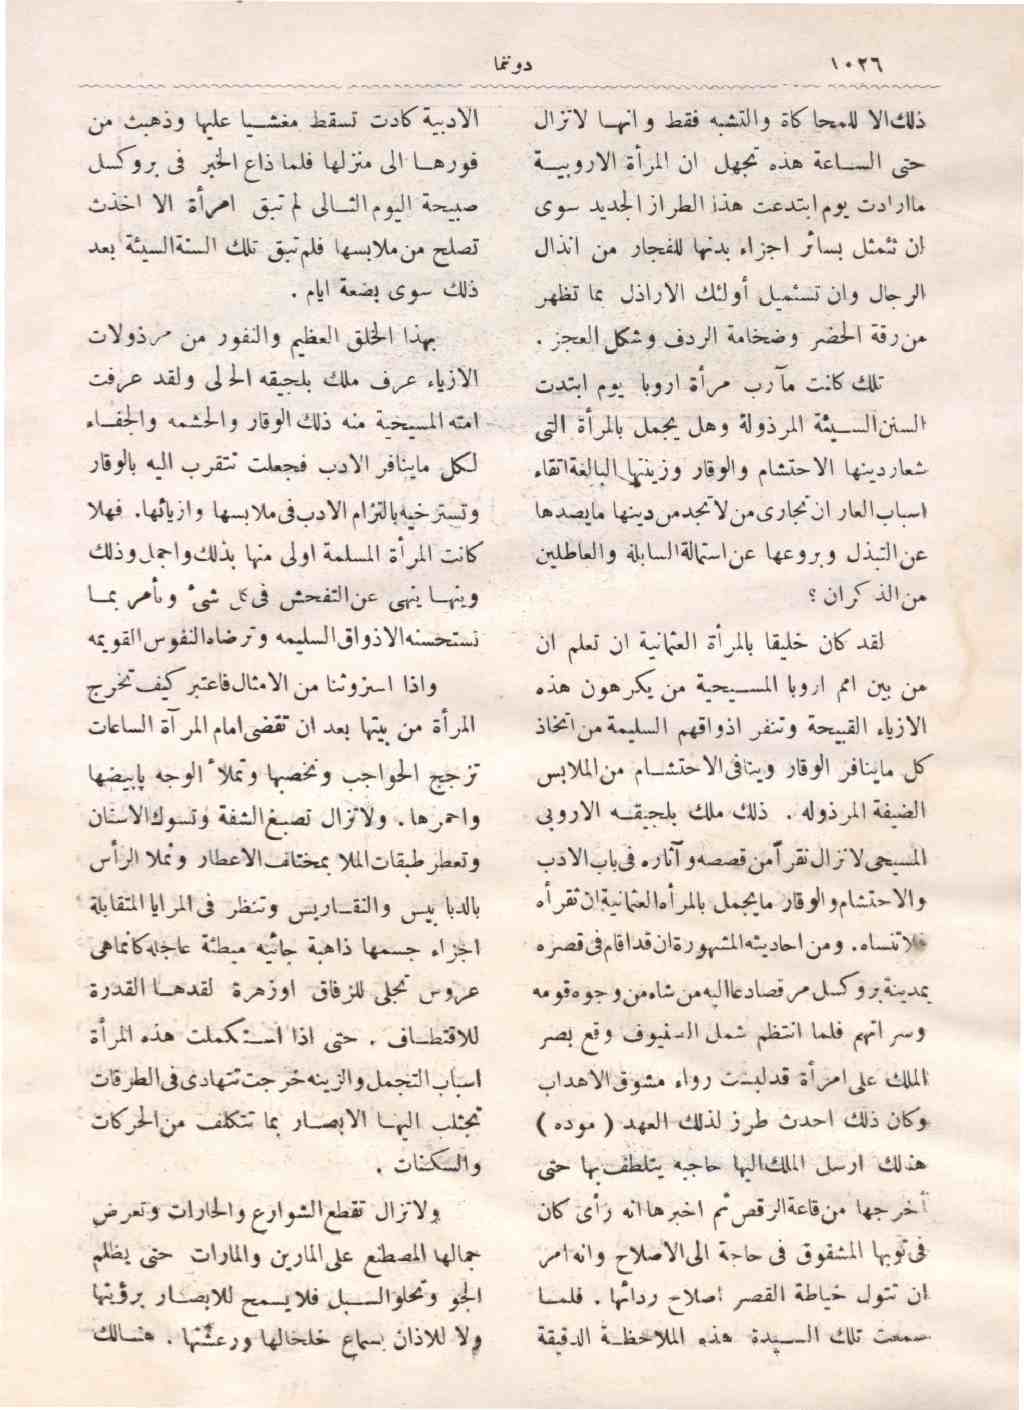 ١٠٢٦
دوننما
ذلك الا للمحاكاة والتشبه فقط وانها لاتزال
حتى الساعة هذه تجهل ان المرأة الاروبية
ماارادت يوم ابتدعت هذا الطراز الجديد سوى
ان تتمثل بسائر اجزاء بدنها للفجار من انذال
الرجال وان تستميل أولئك الاراذل بما تظهر
من رقة الخضر وضخامة الردف وشكل العجز .
تلك كانت مآرب مرأة اروبا يوم ابتدت
السنن السيئة المرذولة وهل يجمل بالمرأة التى
شعاردينها الاحتشام والوقار وزينتها البالغة اتقاء
اسباب العار ان تجارى من لا تجد من دينها مايصدها
عن التبذل وبروعها عن استمالة السابلة والعاطلين
من الذكران ؟
لقد كان خليقا بالمرأة العثمانية ان تعلم ان
من بين امم اروبا المسيحية من يكرهون هذه
الازياء القبيحة وتنفر اذواقهم السليمة من اتخاذ
كل ماينافر الوقار وينافى الاحتشام من الملابس
الضيقة المرذوله . ذلك ملك بلجيقه الاروبى
المسيحى لاتزال نقرأ من قصصه وآثاره فى باب الادب
والاحتشام والوقار مايجمل بالمرأه العثمانية ان تقرأه
فلاتنساه . ومن احاديثه المشهورة ان قد اقام فى قصره
بمدينة بروكسل مرقصا دعا اليه من شاء من وجوه قومه
وسراتهم فلما انتظم شمل الضيوف وقع بصر
الملك على امرأة قد لبست رداء مشوق الاهداب
وكان ذلك احدث طرز لذلك العهد ( موده )
هنالك ارسل الملك اليها حاجبه يتلطف بها حتى
أخرجها من قاعة الرقص ثم اخبرها انه رأى كان
فى ثوبها المشقوق فى حاجة الى الاصلاح وانه امر
ان تتول خياطة القصر اصلاح ردائها . فلما
سمعت تلك السيدة هذه الملاحظة الدقيقة
الادبية كادت تسقط مغشيا عليها وذهبت من
فورها الى منزلها فلما ذاع الخبر فى بروكسل
صبيحة اليوم التالى لم تبق امرأة الا اخذت
تصلح من ملابسها فلم تبق تلك السنة السيئة بعد
ذلك سوى بضعة ايام .
بهذا الخلق العظيم والنفور من مرذولات
الازياء عرف ملك بلجيقه الحالى ولقد عرفت
امته المسيحية منه ذلك الوقار والحشمه والجفاء
لكل ماينافر الادب فجعلت تتقرب اليه بالوقار
وتسترخيه بالتزام الادب فى ملابسها وازيائها . فهلا
كانت المرأة المسلمة اولى منها بذلك واجمل وذلك
وينها ينهى عن التفحش فى كل شئ ويأمر بما
تستحسنه الاذواق السليمه وترضاه النفوس القويمه
واذا استزوثنا من الامثال فاعتبر كيف تخرج
المرأة من بيتها بعد ان تقضى امام المرآة الساعات
تزجج الحواجب وتخضبها وتملأ الوجه بابيضها
واحمرها . ولاتزال تصبغ الشفة وتسوك الاسنان
وتعطر طبقات الملا بمختلف الاعطار وتملا الرأس
بالدبابيس والنقاريس وتنظر فى المرايا المتقابلة
اجزاء جسمها ذاهبة جائيه مبطئة عاجله كانماهى
عروس تجلى للزفاق اوزهرة لقدها القدرة
للاقتطاف . حتى اذا استكملت هذه المرأة
اسباب التجمل والزينه خرجت تتهادى فى الطرقات
تجتلب اليها الابصار بما تتكلف من الحركات
والسكنات .
ولاتزال تقطع الشوارع والحارات وتعرض
جمالها المصطنع على المارين والمارات حتى يظلم
الجو وتخلو السبل فلايسمح للابصار برؤيتها
ولا للاذان بسماع خلخالها ورعشتها . هنالك